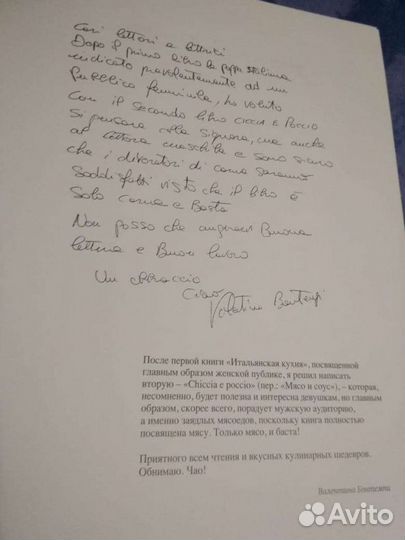 Cari lettori e lettrici
Dopo il primo libro la pappa italiana
indicato prevalentemente ad un
Pubblico femminile, ho voluto
Con il secondo libro CICCIA E POCCIO
Si pensare alla Signora, ma anche
al lettore maschile e sono sicuro
che i divoratori di carne saranno
Soddisfatti visto che il libro è
Solo Carne e Basta
Non posso che augurarvi Buona
lettura e Buon lavoro
Un abbraccio
Ciao
После первой книги «Итальянская кухня», посвященной
главным образом женской публике, я решил написать
вторую – «Chiccia e poccio» (пер.: «Мясо и соус»), – которая,
несомненно, будет полезна и интересна девушкам, но главным
образом, скорее всего, порадует мужскую аудиторию,
а именно заядлых мясоедов, поскольку книга полностью
посвящена мясу. Только мясо, и баста!
Приятного всем чтения и вкусных кулинарных шедевров.
Обнимаю. Чао!
Валентино Бонтемпи
Avito